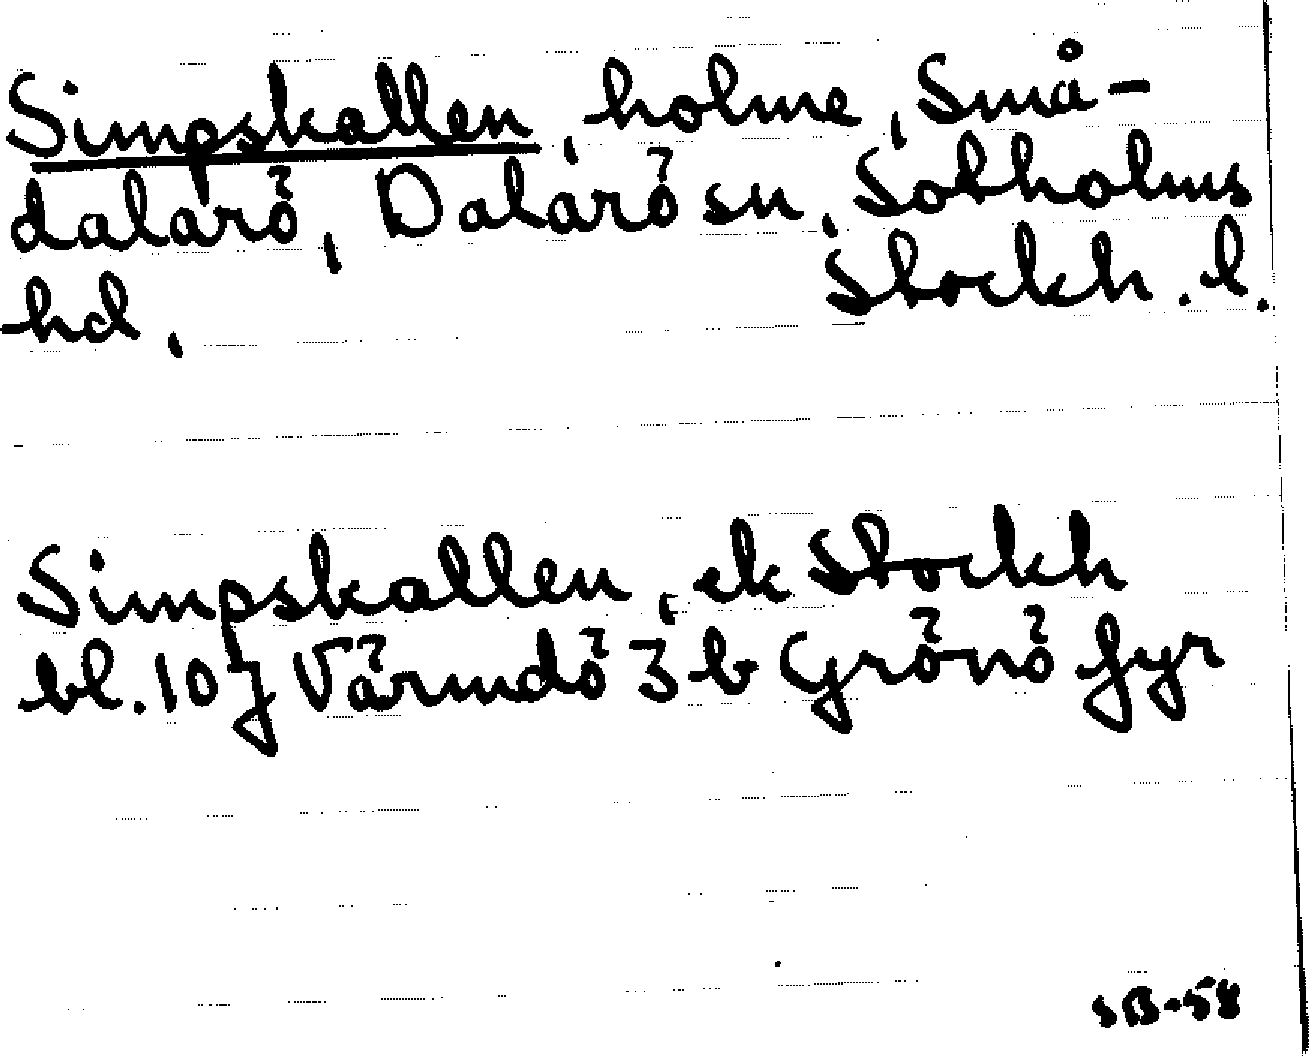 Simpskallen, holme, Små-
dalarö, Dalarö sn, Sotholms
hd, Stockh. l.
Simpskallen, ek Stockh
bl. 107 Värmdö 3 b Grönö fyr
SB-58